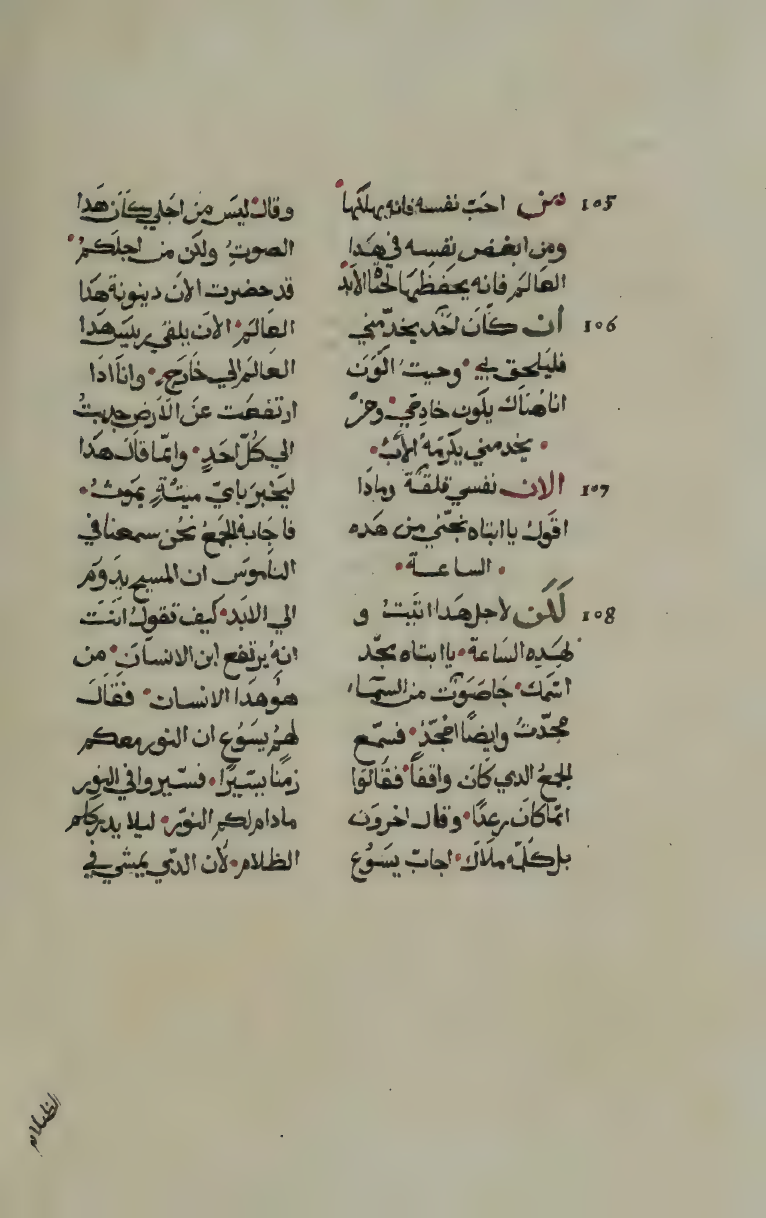 105 من احبّ نفسه فانه يهلكها
ومن ابغض نفسه في هدا
العالم فانه يحفظها لحياة الابد
106 ان كان احد يخدمني
فليلحق بي وحيت اكون
انا هناك يكون خادمي ومن
يخدمني يكرمه الاب
107 الان نفسي قلقة ومادا
اقول يا ابتاه نجّني من هده
الساعة
108 لكن لاجل هدا اتيت و
لهده الساعة يا ابتاه مجّد
اسمك جا صوت من السما
مجّدت وايضا امجّد فسمع
الجمع الدي كان واقفا فقالوا
انما كان رعدا وقال اخرون
بل كلّمه ملاك اجاب يسوع
وقال ليس من اجلي كان هدا
الصوت ولكن من اجلكم
قد حضرت الان دينونة هدا
العالم الان يلقي رييس هدا
العالم الي خارج وانا ادا
ارتفعت عن الارض جدبت
الي كلّ احد وانما قال هدا
ليخبر باي ميتة يموت
فاجابه الجمع نحن سمعنا في
الناموس ان المسيح يدوم
الي الابد كيف تقول انت
انه يرتفع ابن الانسان من
هو هدا الانسان فقال
لهم يسوع ان النور معكم
زمنا يسيرا فسيروا في النور
مادام لكم النور ليلا يدرككم
الظلام لان الدي يمشي في
الظلام